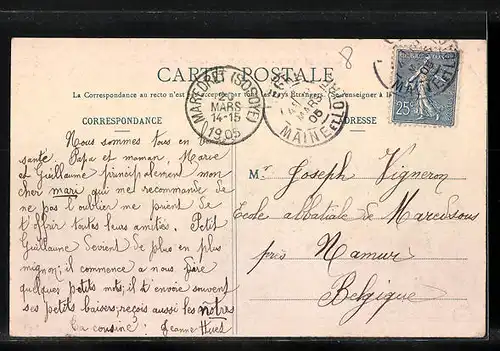 8
CARTE POSTALE
La Correspondance au recto n'est pas acceptée par tous les Pays Étrangers. Se renseigner à la
CORRESPONDANCE
ADRESSE
MAREDRET (SOSOYE)
20
MARS
14-15
1905
MARS
05
MAINE ET LOIRE
25c
Nous sommes tous en
santé. Papa et maman, Marie
et Guillaume principalement mon
cher mari qui me recommande de
ne pas l'oublier me prient de
t'offrir toutes leurs amitiés. Petit
Guillaume devient de plus en plus
mignon; il commence à nous dire
quelques petits mots; il t'envoie souvent
ses petits baisers; reçois aussi les nôtres
Ta cousine: Jeanne Hues
Mr Joseph Vigneron
École abbatiale de Maredsous
près Namur
Belgique